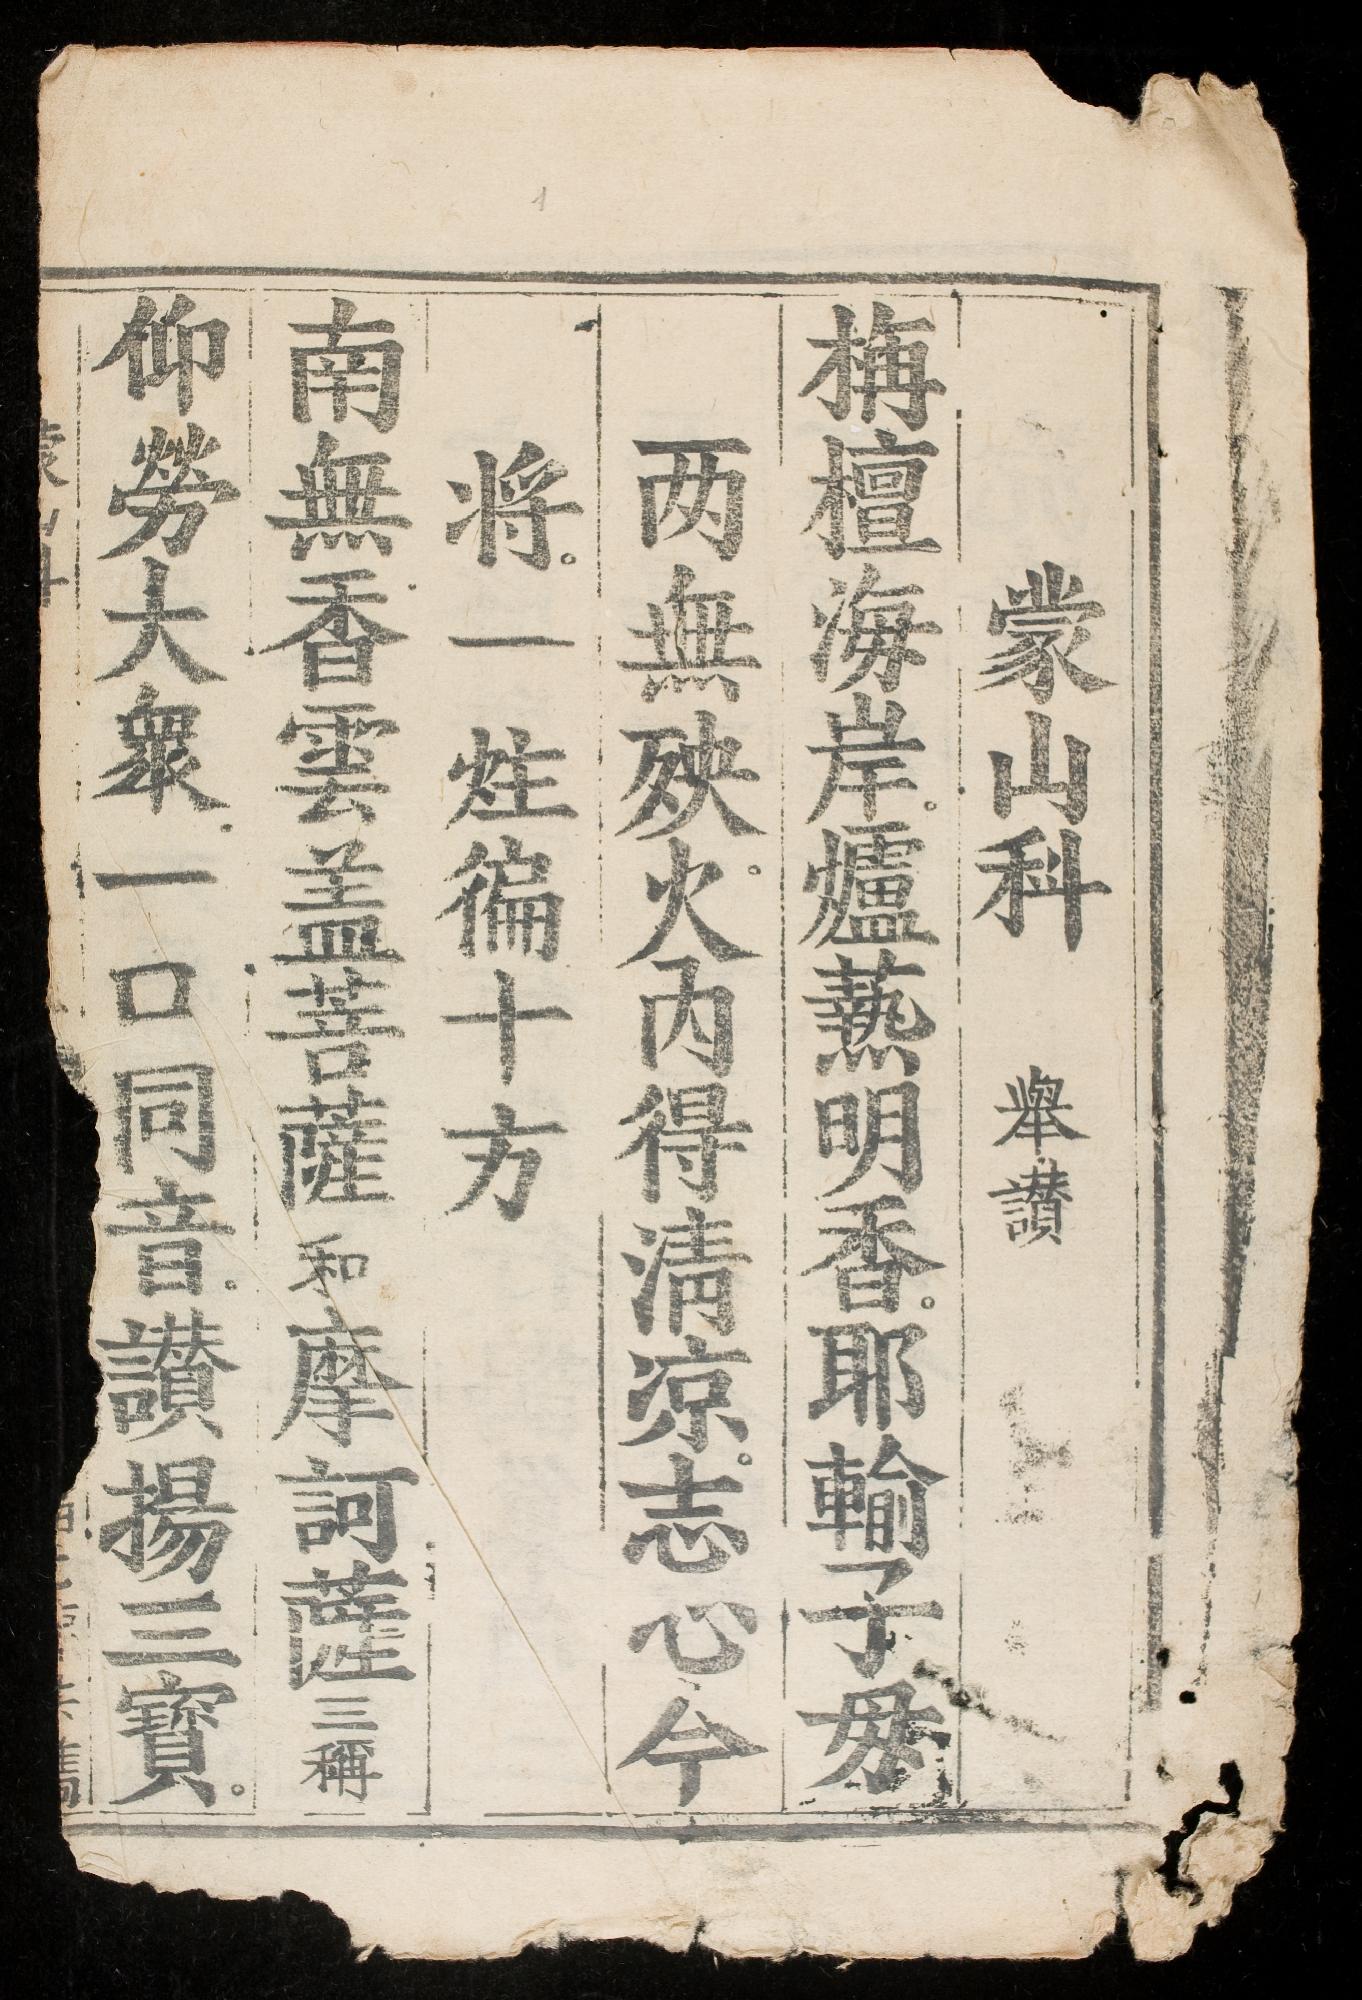 蒙山科 舉讃
栴檀海岸。爐爇明香。耶輸子母
两無殃。火內得清凉。志心今
将。一炷徧十方
南無香雲盖菩薩 和 摩訶薩 三稱
仰勞大衆。一口同音。讃揚三寶。